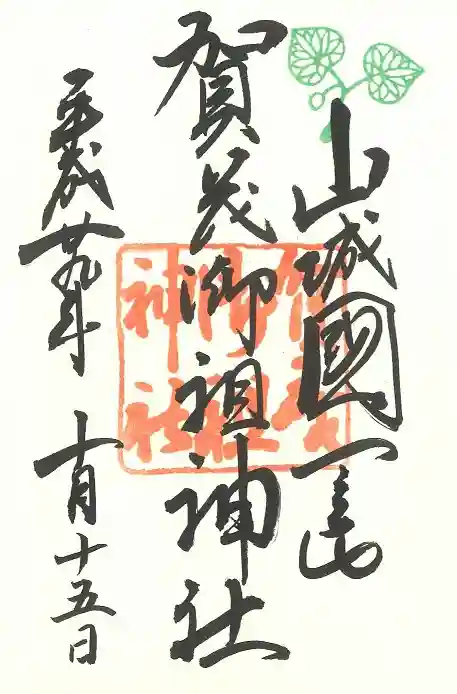 山城國一宮
賀茂御祖神社
平成廿九年 十月十五日
賀茂
御祖
神社